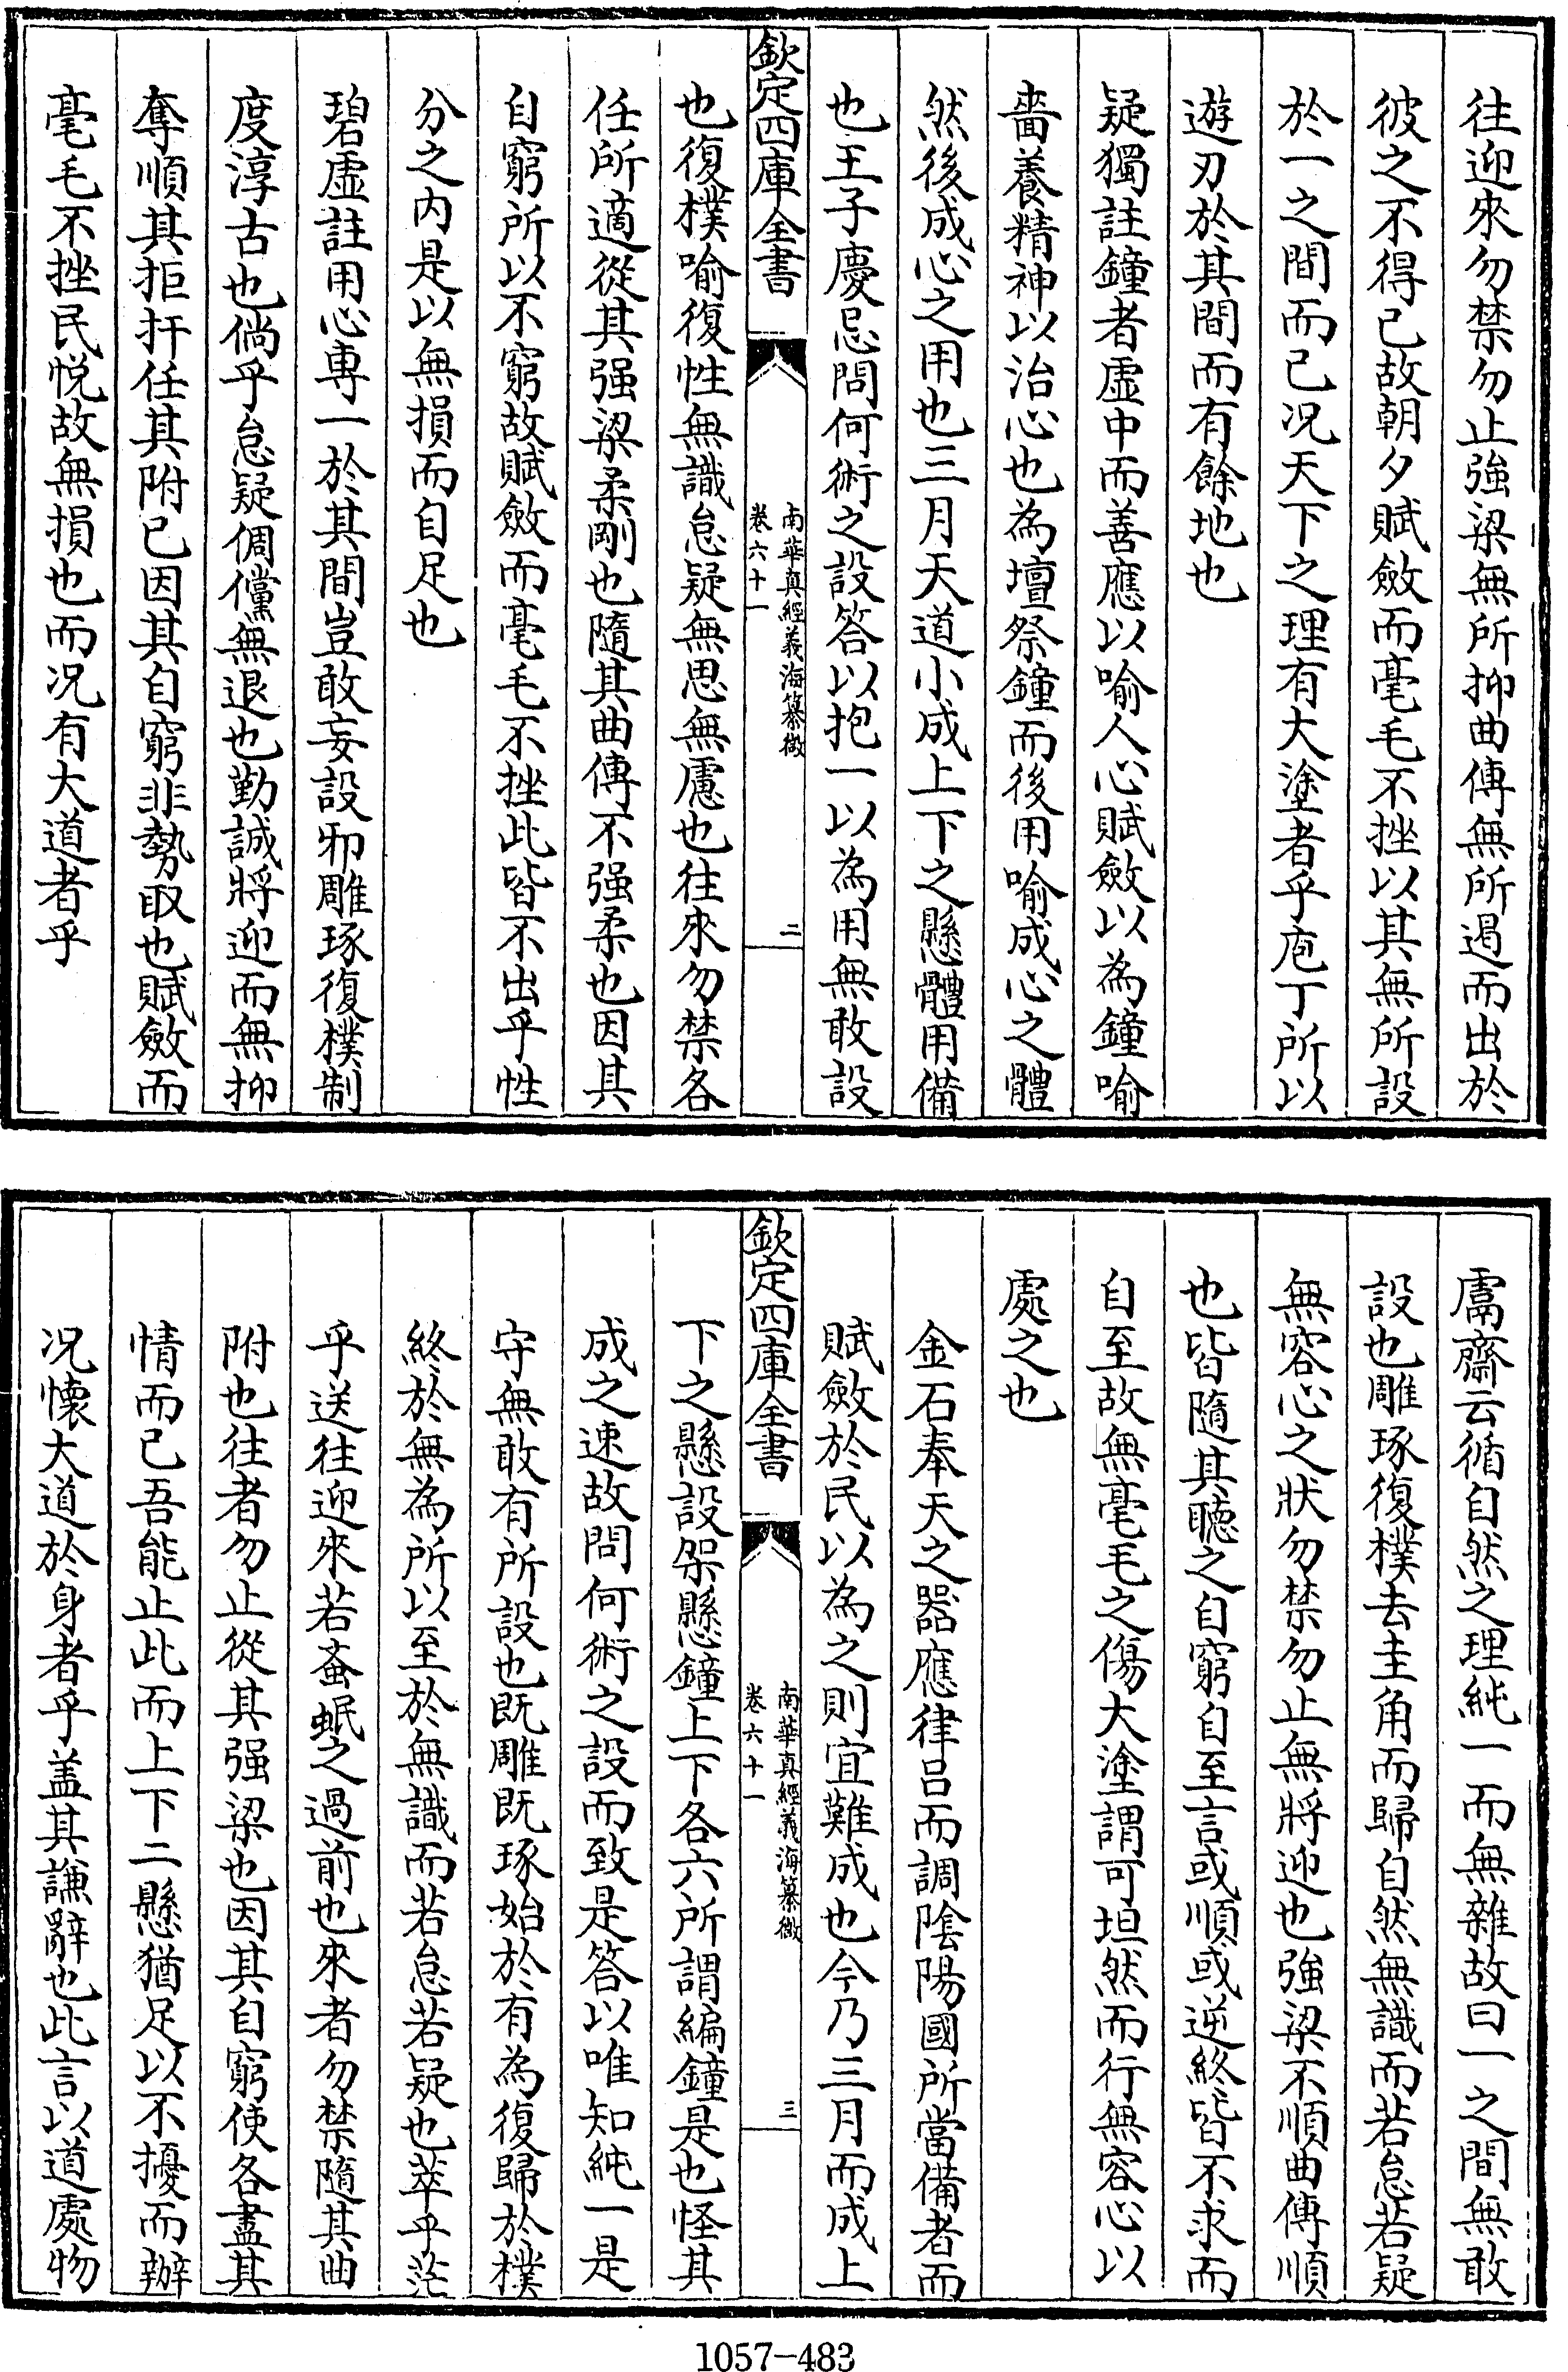 往迎來勿禁勿止強梁無所抑曲傅無所遏而出於
彼之不得已故朝夕賦斂而毫毛不挫以其無所設
於一之間而已况天下之理有大塗者乎庖丁所以
遊刃於其間而有餘地也
疑獨註鐘者虛中而善應以喻人心賦斂以為鐘喻
嗇養精神以治心也為壇祭鐘而後用喻成心之體
然後成心之用也三月天道小成上下之懸體用備
也王子慶忌問何術之設答以抱一以為用無敢設
欽定四庫全書
南華真經義海纂微
卷六十一
二
也復樸喻復性無識怠疑無思無慮也往來勿禁各
任所適從其强梁柔剛也隨其曲傅不强柔也因其
自窮所以不窮故賦斂而毫毛不挫此皆不出乎性
分之内是以無損而自足也
碧虛註用心専一於其間豈敢妄設邪雕琢復樸制
度淳古也倘乎怠疑倜儻無退也勤誠將迎而無抑
奪順其拒扞任其附已因其自窮非勢取也賦斂而
毫毛不挫民悦故無損也而况有大道者乎
鬳齋云循自然之理純一而無雜故曰一之間無敢
設也雕琢復樸去圭角而歸自然無識而若怠若疑
無容心之狀勿禁勿止無將迎也強梁不順曲傅順
也皆隨其聽之自窮自至言或順或逆終皆不求而
自至故無毫毛之傷大塗謂可坦然而行無容心以
處之也
金石奉天之器應律吕而調陰陽國所當備者而
賦斂於民以為之則宜難成也今乃三月而成上
欽定四庫全書
南華真經義海纂微
卷六十一
三
下之懸設架懸鐘上下各六所謂編鐘是也怪其
成之速故問何術之設而致是答以唯知純一是
守無敢有所設也既雕既琢始於有為復歸於樸
終於無為所以至於無識而若怠若疑也萃乎茫
乎送往迎來若蚉蜫之過前也來者勿禁隨其曲
附也往者勿止從其强梁也因其自窮使各盡其
情而已吾能止此而上下二懸猶足以不擾而辦
况懐大道於身者乎盖其謙辭也此言以道處物
1057-483